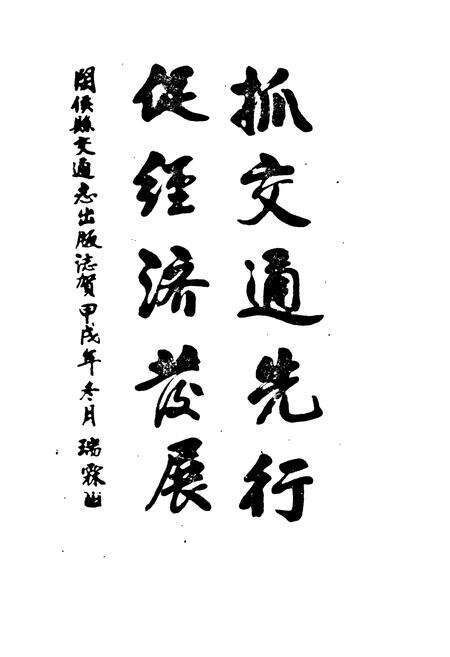 抓交通先行
促经济發展
閩侯縣交通志出版誌賀 甲戌年冬月 瑞霖